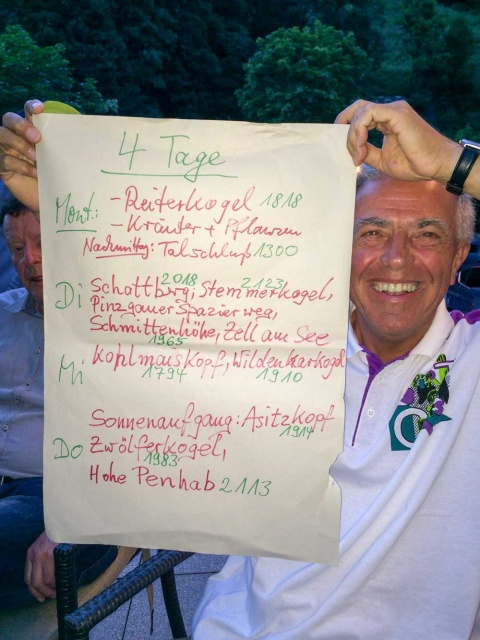 4 Tage
Mont.: -Reiterkogel 1818
-Kräuter + Pflanzen
Nachmittg: Talschluß 1300
2018 2123
Di Schattberg, Stemmerkogel,
Pinzgauer Spazierweg,
Schmittenhöhe, Zell am See
1965
Mi Kohlmaiskopf, Wildenkarkogel
1794 1910
Sonnenaufgang: Asitzkopf
1914
Do Zwölferkogel,
1983
Hohe Penhab 2113